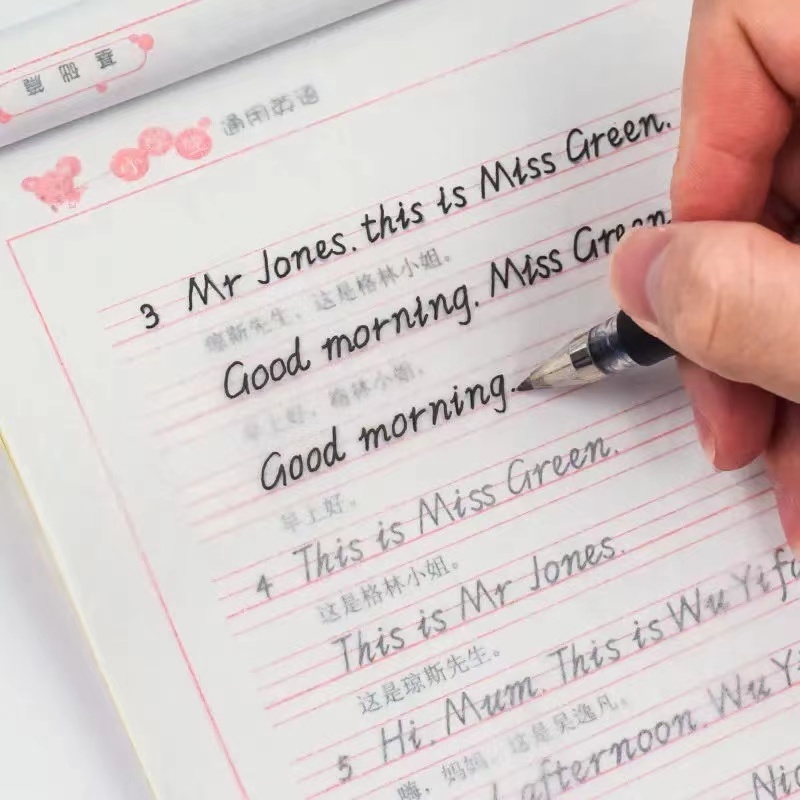 通用英语
3 Mr Jones. this is Miss Green.
琼斯先生，这是格林小姐。
Good morning. Miss Green.
早上好，格林小姐。
Good morning.
早上好。
4 This is Miss Green.
这是格林小姐。
This is Mr Jones.
这是琼斯先生。
5 Hi. Mum. This is Wu Yifa
嗨，妈妈。这是吴逸凡。
afternoon. Wu Yi
Nic